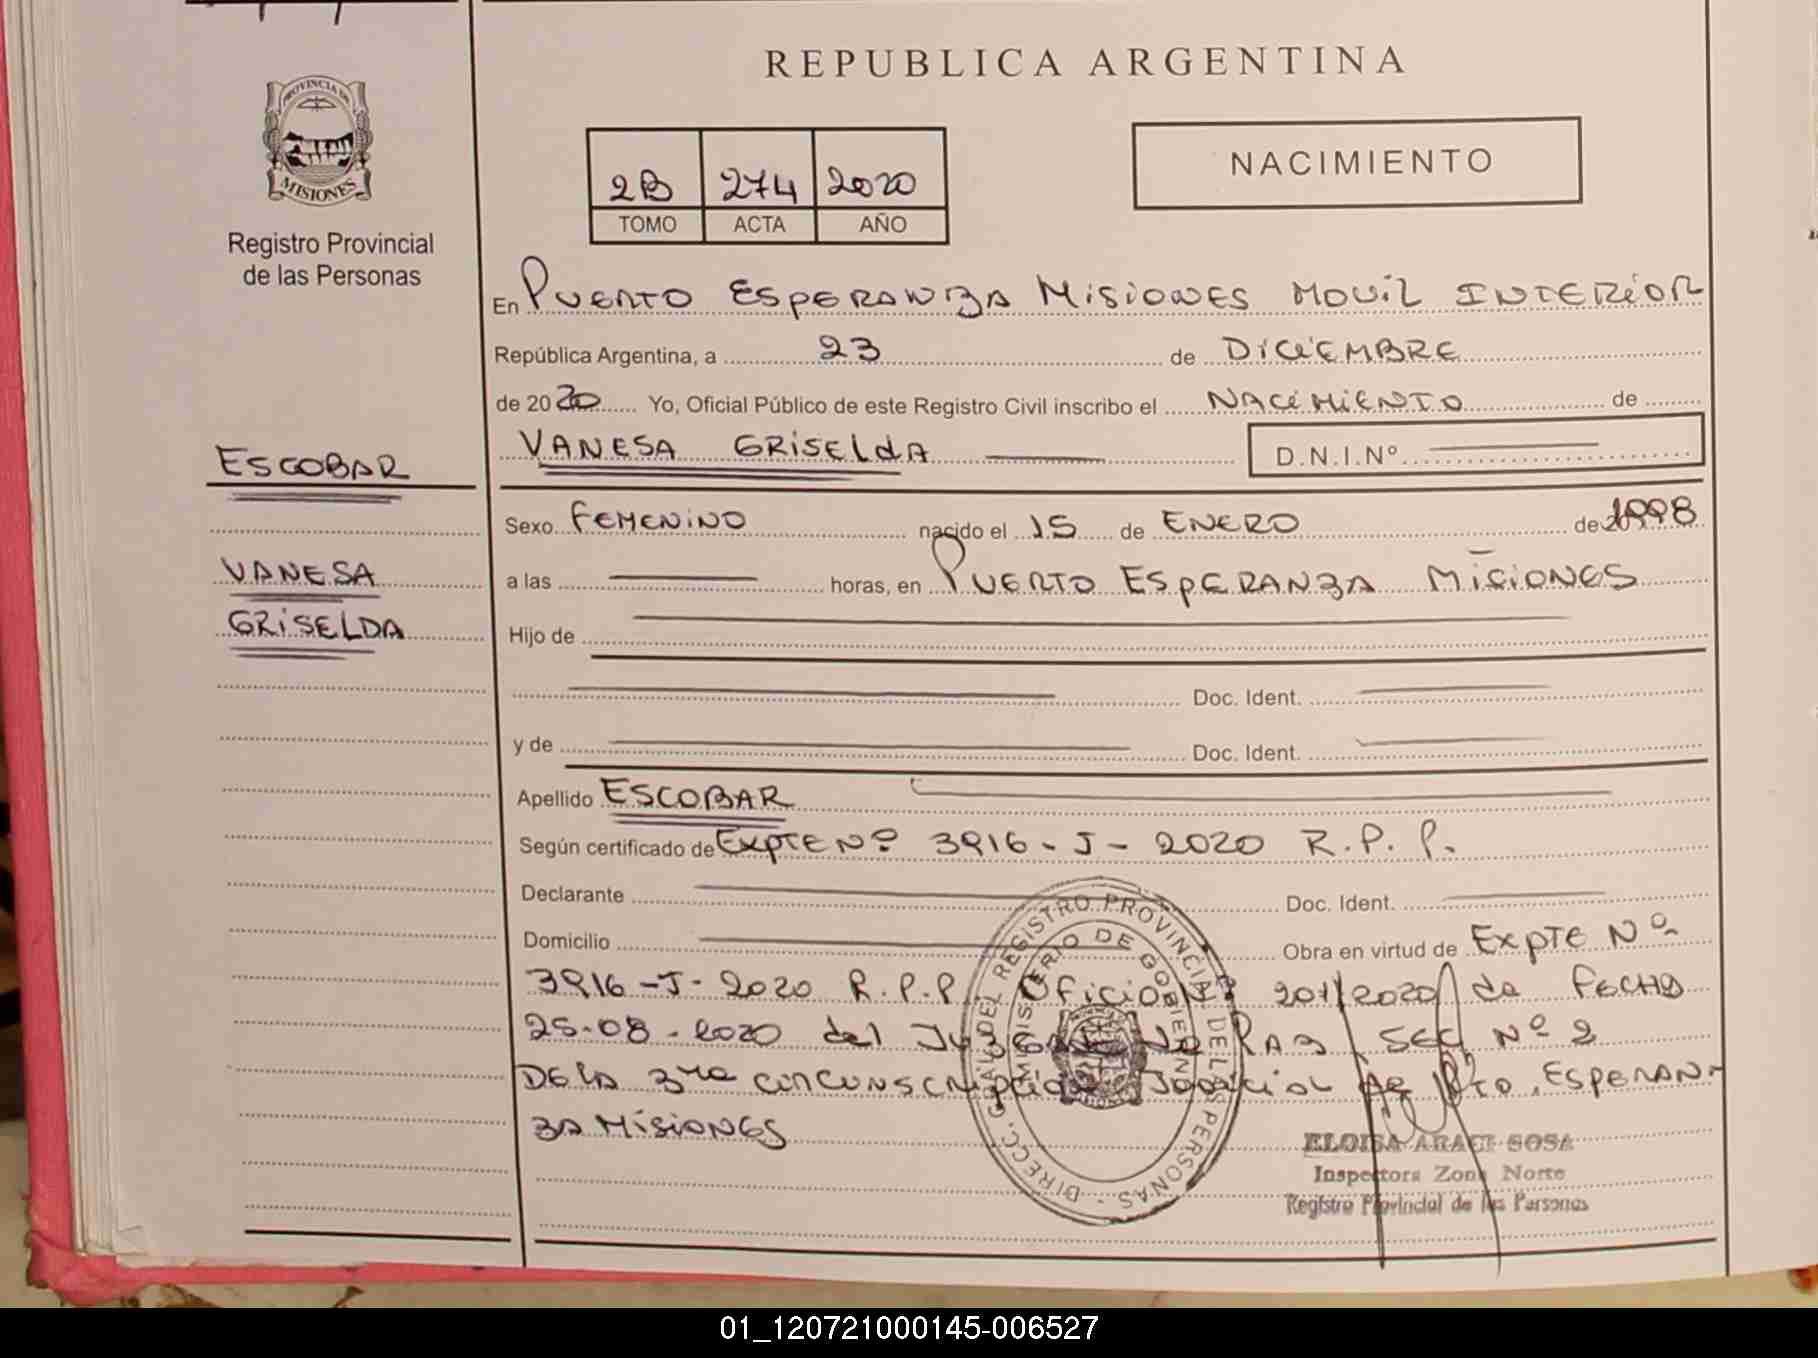 REPUBLICA ARGENTINA
PROVINCIA DE
MISIONES
Registro Provincial
de las Personas
NACIMIENTO
2B 274 2020
TOMO ACTA AÑO
En PUERTO ESPERANZA MISIONES MOVIL INTERIOR
República Argentina, a 23 de DICIEMBRE
de 2020 Yo, Oficial Público de este Registro Civil inscribo el NACIMIENTO de
VANESA GRISELDA D.N.I.Nº
ESCOBAR
VANESA
GRISELDA
Sexo FEMENINO nacido el 15 de ENERO de 1998
a las horas, en PUERTO ESPERANZA MISIONES
Hijo de
Doc. Ident.
y de Doc. Ident.
Apellido ESCOBAR
Según certificado de EXPTE Nº 3916-J-2020 R.P.P.
Declarante Doc. Ident.
Domicilio Obra en virtud de EXPTE Nº
3916-J-2020 R.P.P. Oficio Nº 201/2020 de FECHA
25-08-2020 del Juzgado de PAZ SEC Nº 2
DE LA 3ra circunscripcion Judicial de Pto. ESPERAN-
ZA MISIONES
DIRECC. GRAL. DEL REGISTRO PROVINCIAL DE LAS PERSONAS
MINISTERIO DE GOBIERNO
ELOISA ARACI SOSA
Inspectora Zona Norte
Registro Provincial de las Personas
01_120721000145-006527